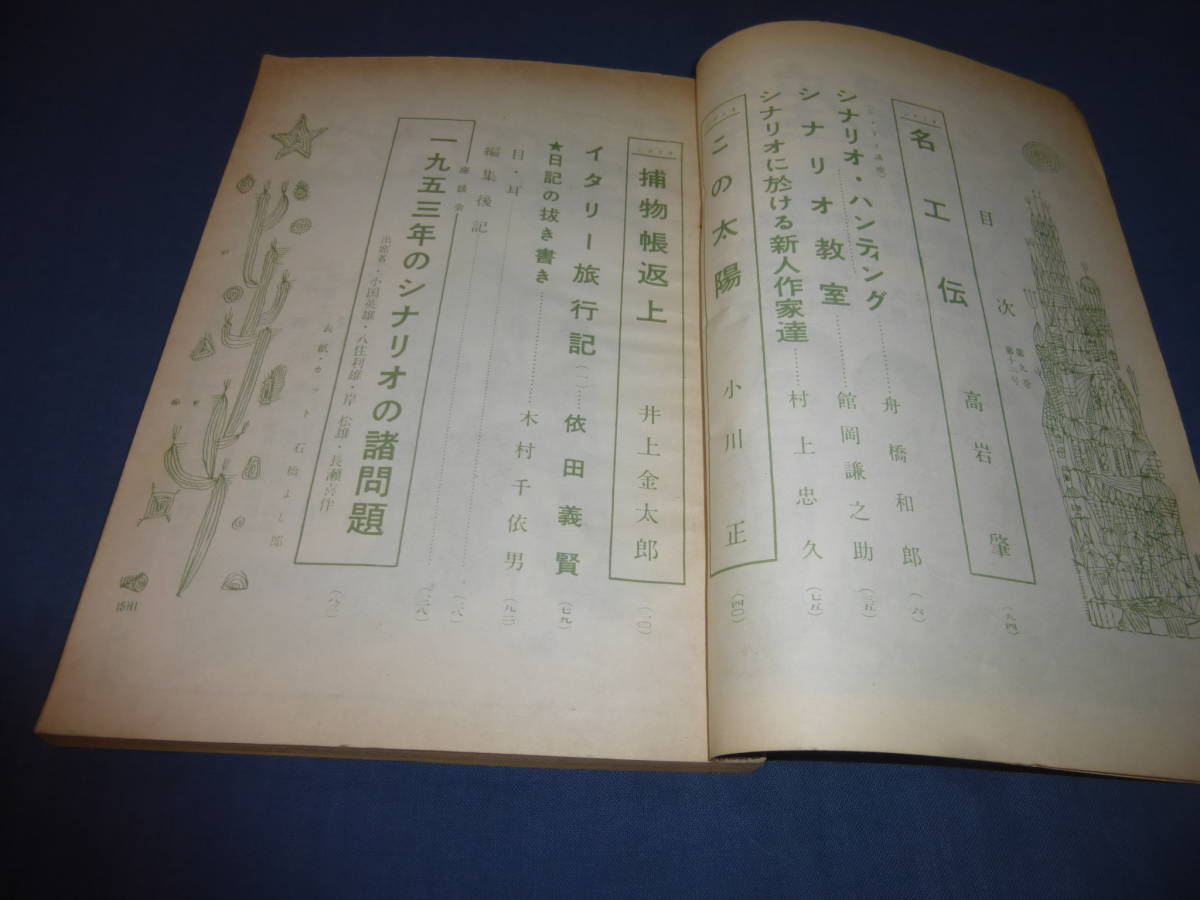 目次
第九巻
第十二号
名工伝 高岩肇 (九四)
シナリオ・ハンティング 舟橋和郎 (六)
シナリオ教室 館岡謙之助 (三五)
シナリオに於ける新人作家達 村上忠久 (七五)
二の太陽 小川正 (四〇)
捕物帳返上 井上金太郎
イタリー旅行記(一) 依田義賢 (七九)
★日記の抜き書き 木村千依男 (九二)
目・耳
編集後記
座談会
一九五三年のシナリオの諸問題
出席者・小国英雄・八住利雄・岸松雄・長瀬喜伴
表紙・カット 石橋よし郎
ISHI